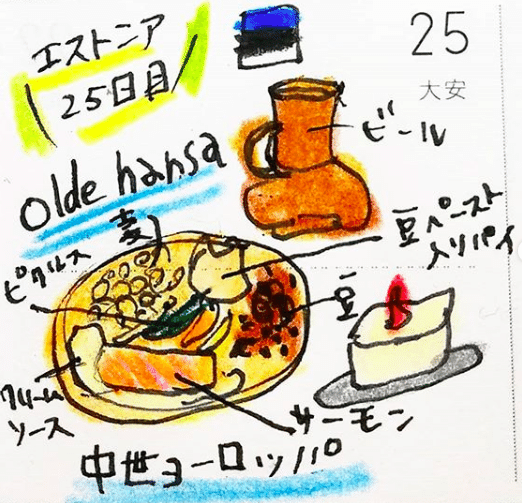 エストニア
25日目
25
大安
ビール
Olde hansa
麦
豆ペースト
入りパイ
ピクルス
豆
クリーム
ソース
サーモン
中世ヨーロッパ